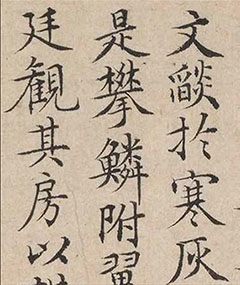 文燄於寒灰
是攀鱗附翼
廷觀其房以